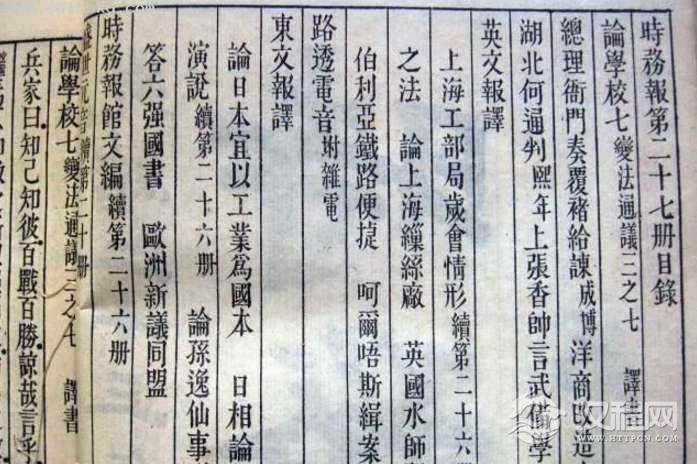 時務報第二十七册目錄
論學校七 變法通議三之七 譯書
總理衙門奏覆褚給諫成博洋商改造
湖北何通判熙年上張香帥言武備學
英文報譯
上海工部局歲會情形續第二十六
之法 論上海繅絲廠 英國水師
伯利亞鐵路便捷 呵爾唔斯緝案
路透電音 坿雜電
東文報譯
論日本宜以工業爲國本 日相論
演説 續第二十六册 論孫逸仙事
答六强國書 歐洲新議同盟
時務報館文編 續第二十六册
盛世元音 續第二十册
論學校七 變法通議三之七 譯書
兵家曰知己知彼百戰百勝諒哉言乎
汉程网
WWW.HTTPCN.COM